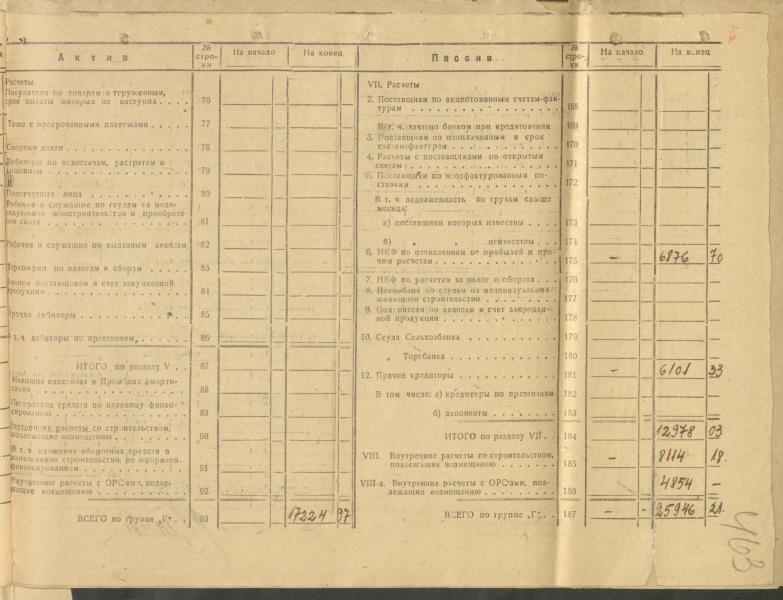 Актив № стро-ки На начало На конец
Расчеты
Покупатели по товарам отгруженным,
срок оплаты которых не наступил . . . . 76
Тоже с просроченными платежами . . . . 77
Спорные долги . . . . 78
Дебиторы по недостачам, растратам и
79
Подотчетные лица . . . . 80
Рабочие и служащие по ссудам на инди-
видуальное жилстроительство и приобрете-
ние скота . . . . 81
Рабочие и служащие по выданным авансам 82
по налогам и сборам . . . . 83
Авансы поставщикам в счет закупаемой
продукции . . . . 84
Прочие дебиторы . . . . 85
В т. ч. дебиторы по претензиям . . . . 86
ИТОГО по разделу V . . 87
Излишне внесенная в Промбанк аморти-
88
Перерасход средств по целевому финан-
сированию . . . . 89
Внутренние расчеты со строительством,
подлежащие возмещению . . . . 90
В т. ч. вложения оборотных средств в
капитальное строительство, не оформлен.
финансированием . . . . 91
Внутренние расчеты с ОРС'ами, подле-
жащие возмещению . . . . 92
ВСЕГО по группе „Г“ . . 93 17224 97
Пассив № стро-ки На начало На конец
VII. Расчеты
2. Поставщики по акцептованным счетам-фак-
турам . . . . 168
В т. ч. зачтено банком при кредитовании 169
3. Поставщики по неоплаченным в срок
счетам-фактурам . . . . 170
4. Расчеты с поставщиками по открытым
счетам . . . . 171
5. Поставщики по неотфактурованным по-
ставкам . . . . 172
В т. ч. задолженность по грузам свыше
месяца:
а) поставщики которых известны . . . . 173
б) „ „ неизвестны . . 174
6. НКФ по отчислениям от прибылей и про-
чим расчетам . . . . 175 – 6876 70
7. НКФ по расчетам за налог с оборота . . 176
8. Цекомбанк по ссудам на индивидуальное
жилищное строительство . . . . 177
9. Покупатели по авансам в счет запродан-
ной продукции . . . . 178
10. Ссуда Сельхозбанка . . . . 179
„ Торгбанка . . . . 180
12. Прочие кредиторы . . . . 181 – 6101 33
В том числе: а) кредиторы по претензиям 182
б) депоненты . . . . 183
ИТОГО по разделу VII . . 184 12978 03
VIII. Внутренние расчеты со строительством,
подлежащие возмещению . . . . 185 – 8114 18.
VIII-а. Внутренние расчеты с ОРС'ами, под-
лежащие возмещению . . . . 186 4854 –
ВСЕГО по группе „Г“ . . 187 – – 25946 21.
463